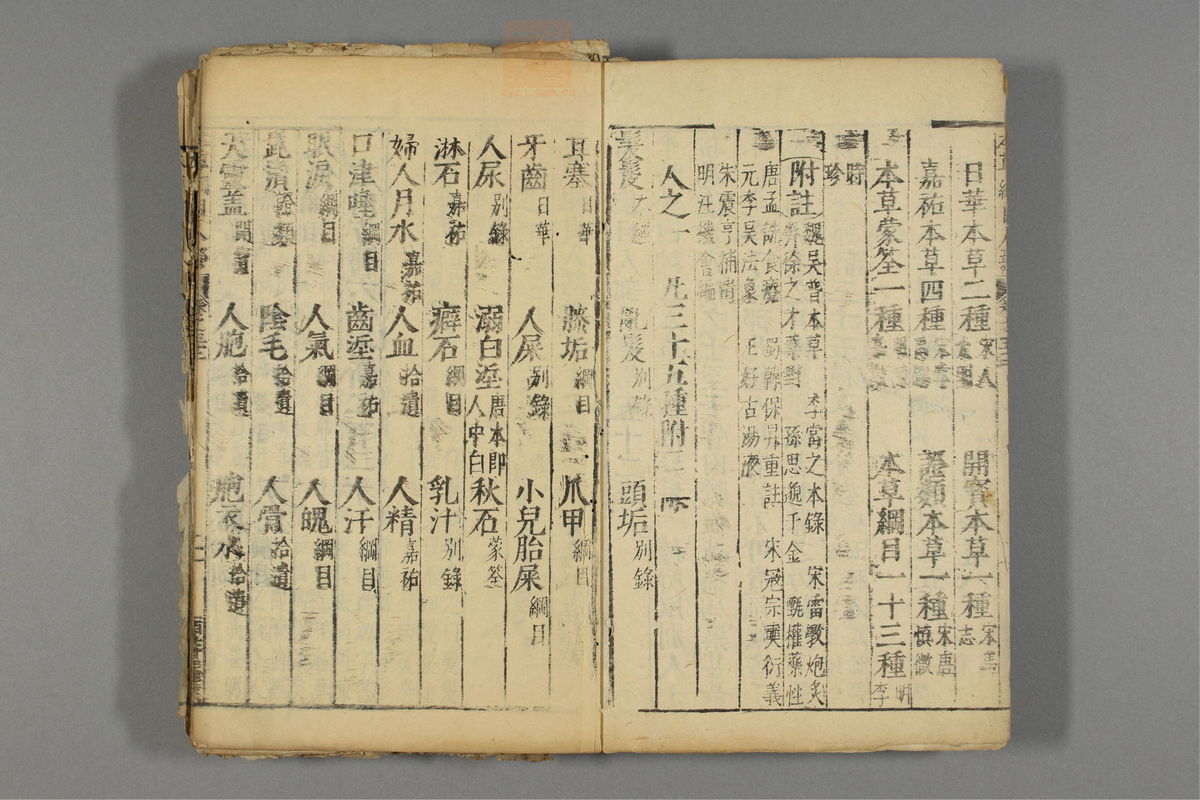 日華本草二種 宋人 開寶本草一種 宋 志
嘉祐本草四種 宋 證類本草一種 宋唐慎微
本草蒙筌一種 本草綱目一十三種 明李
時珍
附註 魏吳普本草 李當之本錄 宋雷斆炮炙
徐之才藥對 孫思邈千金 甄權藥性
唐孟詵食療 蜀韓保昇重註 宋寇宗奭衍義
元李吳法象 王好古湯液
朱震亨補遺
明汪機會編
人之一 凡三十五種附二
髮髲 亂髮 別錄 頭垢 別錄
耳塞 日華 膝垢 綱目 爪甲 綱目
牙齒 日華 人屎 別錄 小兒胎屎 綱目
人尿 別錄 溺白垽 唐本即人中白 秋石 蒙筌
淋石 嘉祐 癖石 綱目 乳汁 別錄
婦人月水 嘉祐 人血 拾遺 人精 嘉祐
口津唾 綱目 齒垽 嘉祐 人汗 綱目
眼淚 綱目 人氣 綱目 人魄 綱目
陰毛 拾遺 人骨 拾遺
天靈蓋 開寶 人胞 拾遺 胞衣水 拾遺